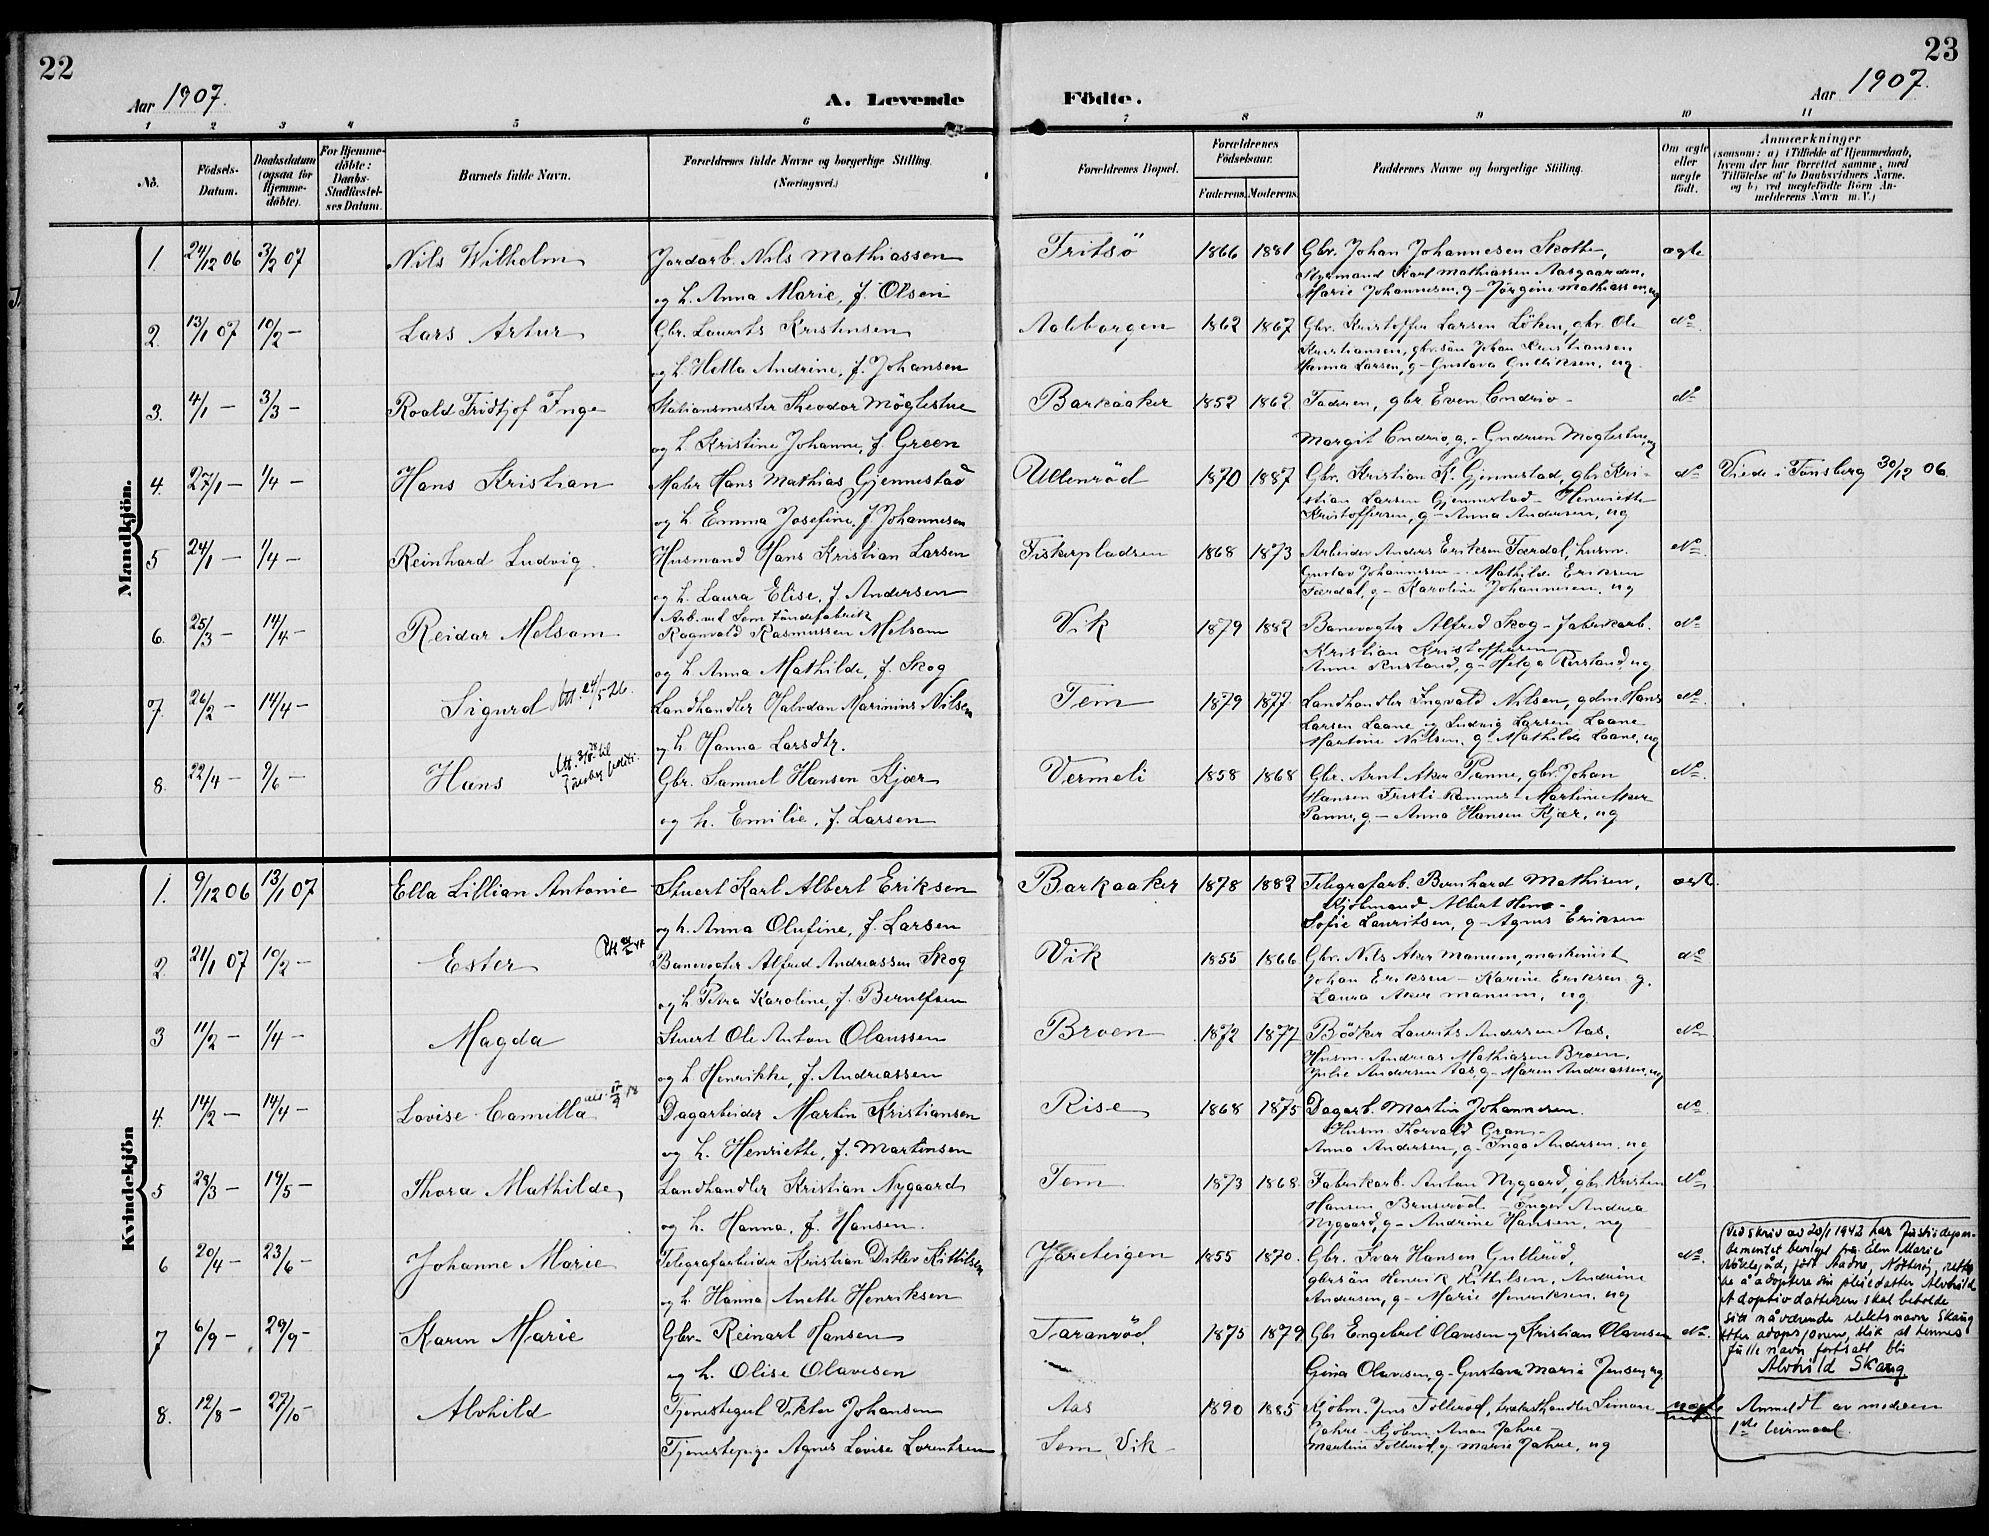 22
Aar 1907.
A. Levende
1 2 3 4 5 6
No.
Födsels-Datum.
Daabsdatum (ogsaa for Hjemme-döbte).
For Hjemme-döbte: Daabs-Stadfæstel-ses Datum.
Barnets fulde Navn.
Forældrenes fulde Navne og borgerlige Stilling.
(Næringsvei.)
Mandkjön.
1. 24/12 06 3/2 07 Nils Wilhelm Jordarb. Nils Mathiassen
og h. Anna Marie, f. Olsen
2. 13/1 07 10/2 — Lars Artur Gbr. Laurits Kristensen
og h. Andrine, f. Johansen
3. 4/1 — 3/3 — Roald Fridtjof Inge Stationsmester Theodor Möglestue
og h. Kristine Johanne, f. Green
4. 27/1 — 1/4 — Hans Kristian Maler Hans Mathias Gjennestad
og h. Emma Josefine, f. Johannesen
5 24/1 — 1/4 — Reinhard Ludvig. Husmand Hans Kristian Larsen
og h. Laura Elise, f. Andersen
6. 25/3 — 14/4 — Reidar Melsom Arb. ved Sem Töndefabrik
Ragnvald Rasmussen Melsom
og h. Anna Mathilde, f. Skog
7. 26/2 — 14/4 — Sigurd Att. 24/5-26. Landhandler Halvdan Marinius Nilsen
og h. Hanna Larsdtr.
8. 22/4 — 9/6 — Hans Gbr. Samuel Hansen Kjær
og h. Emilie, f. Larsen
Kvindekjön
1. 9/12 06 13/1 07 Ella Lillian Antonie Stuert Karl Albert Eriksen
og h. Anna Olufine, f. Larsen
2. 21/1 07 10/2 — Ester Banevogter Alfred Andreassen Skog
og h. Petra Karoline, f. Berntsen
3 11/2 — 1/4 — Magda Stuert Ole Anton Olaussen
og h. Henrikke, f. Andreassen
4. 14/2 — 14/4 — Lovise Camilla Dagarbeider Martin Kristiansen
og h. Henriette, f. Martinsen
5 28/3 — 19/5 — Thora Mathilde Landhandler Kristian Nygaard
og h. Hanna, f. Hansen.
6 20/4 — 23/6 — Johanne Marie Telegrafarbeider Kristian Ditlev Kittilsen
og h. Hanna Anette Henriksen
7 6/9 — 29/9 — Karen Marie Gbr. Reinart Hansen
og h. Olise Olavesen
8. 12/8 — 27/10 — Alvhild Tjenestegut Viktor Johansen
Tjenestepige Agnes Lovise Lorentsen
23
Aar 1907.
Födte.
7 8 9 10 11
Forældrenes Bopæl.
Forældrenes Födselsaar.
Faderens. Moderens.
Faddernes Navne og borgerlige Stilling.
Om ægte eller uægte födt.
Anmærkninger
(saasom: a) i Tilfælde af Hjemmedaab, hvem der har forrettet samme, med Tilföielse af to Daabsvidners Navne. og b) ved uægtefödte Börn An-melderens Navn m. V.)
Fritsö 1866 1881 Gbr. Johan Johannesen Skotte, ægte
Styrmand Karl Mathiassen Aasgaarden,
Marie Johannesen, g — Jörgine Mathiassen, ug
Aaleborgen 1862 1867 Gbr. Kristoffer Larsen Löken, gbr. Ole do
Kristiansen, gbr. sön Johan Kristiansen
Hanna Larsen, g — Gustava Gulliksen, ug.
Barkaaker 1852 1862 Faderen, gbr. Even Endrio — do
Margit Endrio, g. — Gudrun Möglestue, ug
Ullenröd 1870 1887 Gbr. Kristian K. Gjennestad, gbr. Kri- do Viede i Tønsberg 30/12 06.
stian Larsen Gjennestad — Henriette
Kristoffersen, g — Anna Andersen, ug
Fiskerpladsen 1868 1873 Arbeider Anders Eriksen Færdal, husm. do
Gustav Johannesen — Mathilde Eriksen
Færdal, g — Karoline Johannesen, ug
Vik 1879 1882 Banevogter Alfred Skog — fabrikarb. do
Kristian Kristoffersen
Anne Rustand, g — Helga Rustand, ug
Tem 1879 1877 Landhandler Ingvald Nilsen, gdm Hans do
Larsen Laane og Ludvig Larsen Laane
Martine Nilsen, g — Mathilde Laane, ug
Vermeli 1858 1868 Gbr. Arnt Aker Panne, gbr. Johan do
Hansen — Martine Aker
Panne, g — Anna Hansen Kjær, ug
Barkaaker 1878 1882 Telegrafarb. Bernhard Mathisen,
Kjöbmand Albert
Sofie Lauritsen, g — Agnes Eriksen
Vik 1855 1866 Gbr. Nils Aker Manum, maskinist do
Johan Eriksen — Karine Eriksen g.
Laura Aker Manum, ug
Broen 1872 1877 Bödker Laurits Andersen Aas, do
Husm. Andreas Mathiasen Broen,
Julie Andersen Aas, g — Maren Andreassen, ug
Rise 1868 1875 Dagarb. Martin Johannesen. do
Husm. Gran —
Anna Andersen, g — Inga Andersen, ug
Tem 1873 1868 Fabrikarb. Anton Nygaard, gbr. Kristen do
Hansen — Inger Andrea
Nygaard, g — Andrine Hansen, ug
Jareteigen 1855 1870 Gbr. Ivar Hansen Gulleröd, do
gbrsön Henrik Kittilsen, Andrine
Andersen, g — Marie Henriksen, ug
Taranröd 1875 1879 Gbr Engebret Olavesen og Kristian Olavesen do
Gina Olavesen, g — Gustava Marie Jensen, ug
Aas 1890 1885 Kjöbm. Jens Tolleröd, Simon Anmeldt av moderen
Sem, Vik — Jahre — Kjöbm. Jahre — 1ste leirmaal.
Martine Tolleröd, g — Marie Jahre, ug
Ved skriv av 20/1 1942 har Justisdepar-
tementet fra Elen Marie
født Aadne, Nøtterøy, rett
til å adoptere sin pleiedatter Alvhild.
Adoptivdatteren skal beholde
sitt nåværende slektsnavn Skaug
etter adopsjonen, slik at hennes
fulle navn fortsatt bli
Alvhild Skaug